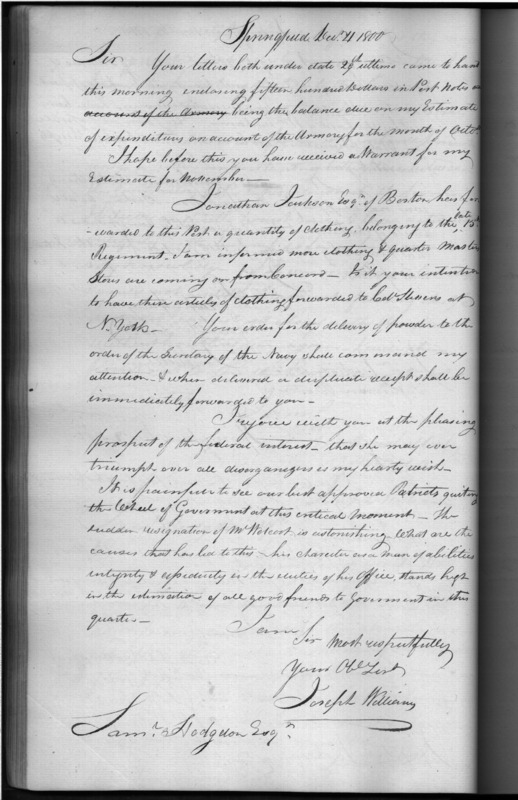 Springfield Decr. 4 1800
Sir Your letters both under date 29th. ultimo came to hand
this morning enclosing fifteen hundred Dollars in Post Notes on
accounts of the Armory being the balance due on my Estimate
of expenditures on account of the Armory for the month of Octr.
I hope before this you have received a Warrant for my
Estimate for November —
Jonathan Jackson Esqr. of Boston has for
-warded to this Post a quantity of clothing belonging to the late 15th.
Regiment. I am informed more clothing & quarter Master
Stores are coming on from Concord — Is it your intention
to have these articles of clothing forwarded to Colo. Stevens at
N. York — Your order for the delivery of powder to the
order of the Secretary of the Navy shall command my
attention — & when delivered a duplicate receipt shall be
immediately forwarded to you —
I rejoice with you at the pleasing
prospect of the federal interest — that she may ever
triumph over all disorganizers is my hearty wish —
It is painful to see our best approved Patriots quiting
the Wheel of Goverment at this critical moment — The
sudden resignation of Mr. Wolcott is astonishing. What are the
causes that has led to this — his character as a man of abilities
integrity & in the duties of his Office, stands high
in the estimation of all good friends to Goverment in this
quarter —
I am Sir most respectfully
Your Obt. Servt.
Joseph Williams
Saml. Hodgdon Esqr.